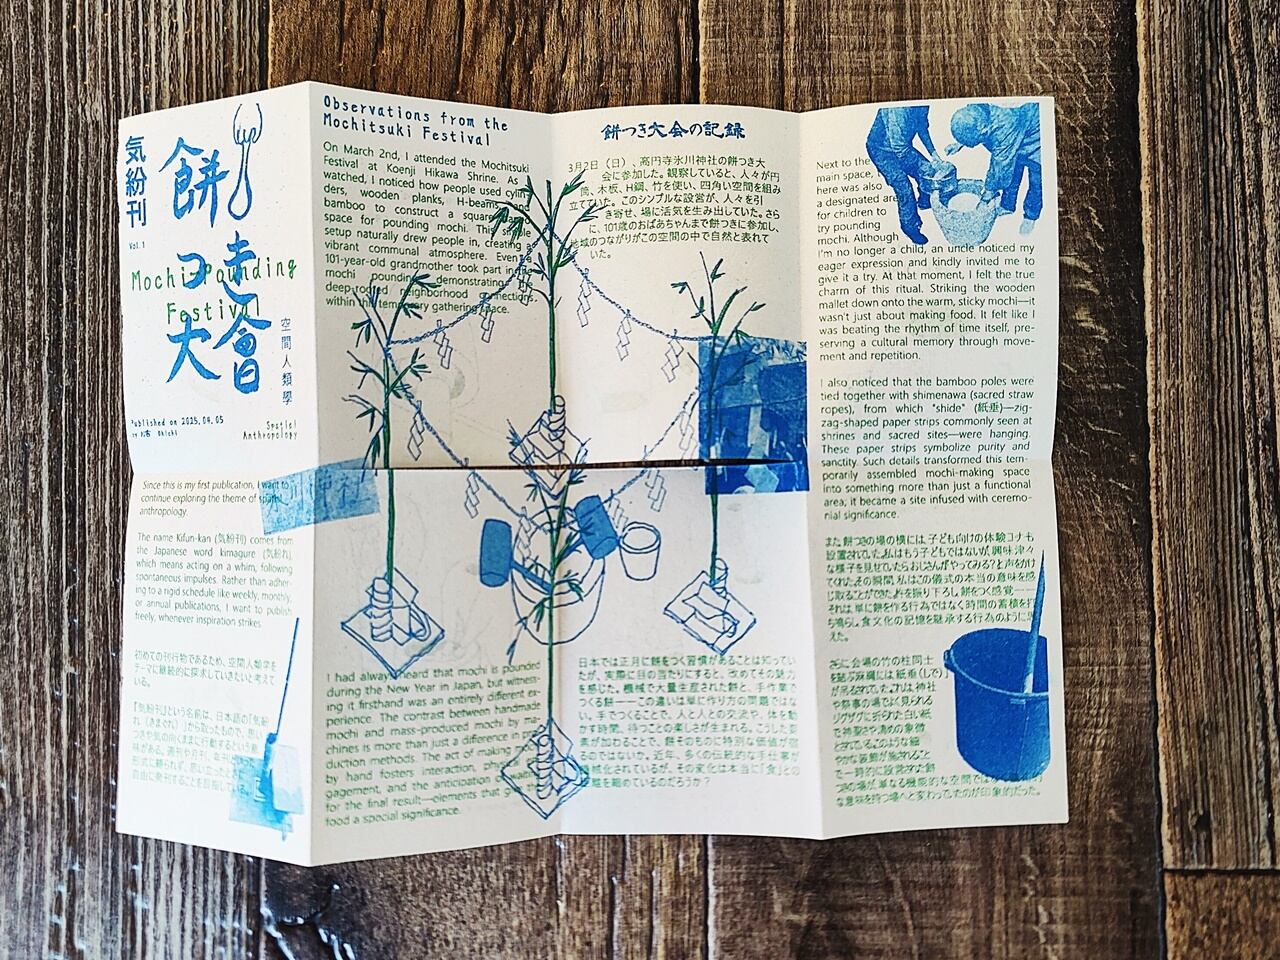 気紛刊
Vol.1
餅つき大會
Mochi Pounding
Festival
空間人類學
Published on 2025.04.05
Spatial
Anthropology
Since this is my first publication, I want to
continue exploring the theme of spatial
anthropology.
The name Kifun-kan (気紛刊) comes from
the Japanese word kimagure (気紛れ),
which means acting on a whim, following
spontaneous impulses. Rather than adher-
ing to a rigid schedule like weekly, monthly,
or annual publications, I want to publish
freely, whenever inspiration strikes.
初めての刊行物であるため、空間人類学を
テーマに継続的に探求していきたいと考えて
いる。
『気紛刊』という名前は、日本語の「気紛
れ（きまぐれ）」から取ったもので、思い
つきや気の向くままに行動するという意
味がある。週刊や月刊、年刊
形式に縛られず、思い立った
自由に発刊することを目指している。
Observations from the
Mochitsuki Festival
On March 2nd, I attended the Mochitsuki
Festival at Koenji Hikawa Shrine. As I
watched, I noticed how people used cylin-
ders, wooden planks, H-beams, and
bamboo to construct a square
space for pounding mochi. This simple
setup naturally drew people in, creating a
vibrant communal atmosphere. Even a
101-year-old grandmother took part in the
mochi pounding, demonstrating the
deep-rooted neighborhood connections
within this temporary gathering space.
餅つき大会の記録
3月2日（日）、高円寺氷川神社の餅つき大
会に参加した。観察していると、人々が円
筒、木板、H鋼、竹を使い、四角い空間を組み
立てていた。このシンプルな設営が、人々を引
き寄せ、場に活気を生み出していた。さら
に、101歳のおばあちゃんまで餅つきに参加し、
地域のつながりがこの空間の中で自然と表れて
いた。
I had always heard that mochi is pounded
during the New Year in Japan, but witness-
ing it firsthand was an entirely different ex-
perience. The contrast between handmade
mochi and mass-produced mochi by ma-
chines is more than just a difference in pro-
duction methods. The act of making mochi
by hand fosters interaction, physical en-
gagement, and the anticipation of waiting
for the final result—elements that give the
food a special significance.
日本では正月に餅をつく習慣があることは知ってい
たが、実際に目の当たりにすると、改めてその魅力
を感じた。機械で大量生産された餅と、手作業で
つくる餅――この違いは単に作り方の問題ではな
い。手でつくることで、人と人との交流や、体を動
かす時間、待つことの楽しさが生まれる。こうした要
素が加わることで、餅そのものに特別な価値が宿
るのではないか。近年、多くの伝統的な手仕事が
機械化されているが、その変化は本当に「食」との
距離を縮めているのだろうか？
Next to the
main space,
there was also
a designated area
for children to
try pounding
mochi. Although
I'm no longer a child, an uncle noticed my
eager expression and kindly invited me to
give it a try. At that moment, I felt the true
charm of this ritual. Striking the wooden
mallet down onto the warm, sticky mochi—it
wasn't just about making food. It felt like I
was beating the rhythm of time itself, pre-
serving a cultural memory through move-
ment and repetition.
I also noticed that the bamboo poles were
tied together with shimenawa (sacred straw
ropes), from which "shide" (紙垂)—zig-
zag-shaped paper strips commonly seen at
shrines and sacred sites—were hanging.
These paper strips symbolize purity and
sanctity. Such details transformed this tem-
porarily assembled mochi-making space
into something more than just a functional
area; it became a site infused with ceremo-
nial significance.
また餅つきの場の横には子ども向けの体験コーナも
設置されていた。私はもう子どもではないが、興味津々
な様子を見せていたらおじさんが「やってみる?」と声をかけ
てくれた。その瞬間、私はこの儀式の本当の意味を感
じ取ることができた。杵を振り下ろし餅をつく感覚――
それは単に餅を作る行為ではなく時間の蓄積を打
ち鳴らし、食文化の記憶を継承する行為のように思
えた。
さらに会場の竹の柱同士
を結ぶ麻縄には「紙垂（しで）」
が吊るされていた。これは神社
や祭事の場でよく見られる
ジグザグに折られた白い紙
で神聖さや清めの象徴
とされている。このような細
やかな装飾が施されること
で一時的に設営された餅
つきの場が、単なる機能的な空間ではなく
な意味を持つ場へと変わっていたのが印象的だった。